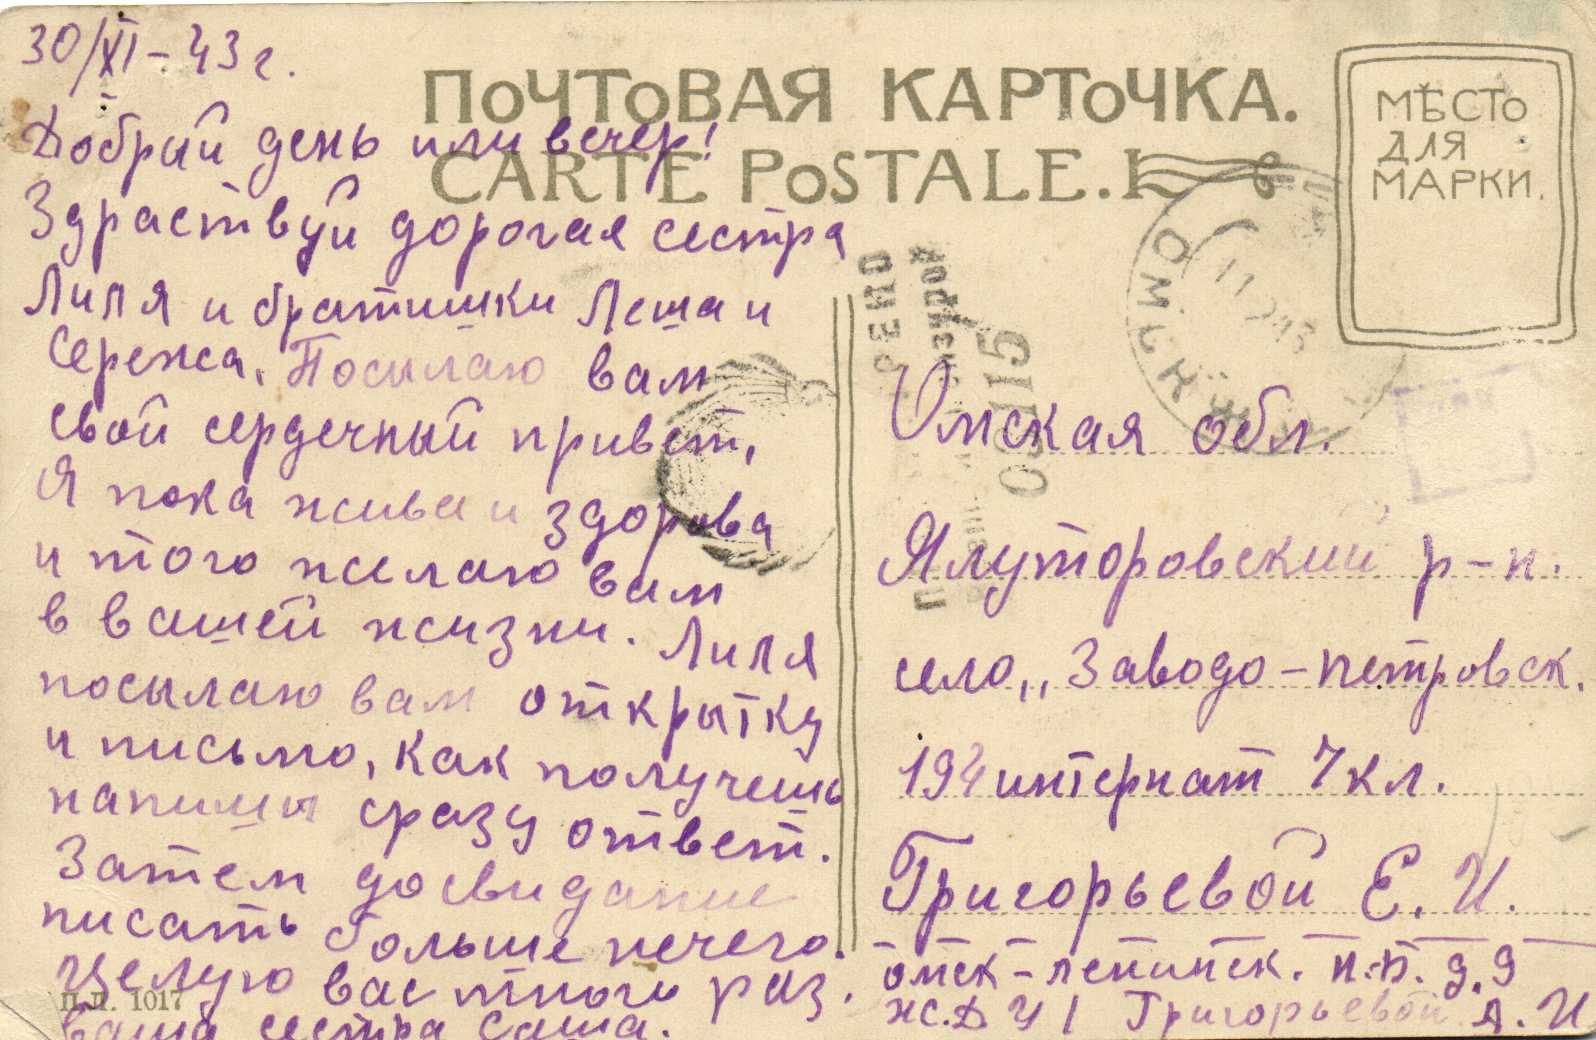 30/XI-43 г.
ПОЧТОВАЯ КАРТОЧКА.
CARTE POSTALE.
МѢСТО
ДЛЯ
МАРКИ.
Добрый день или вечер!
Здраствуй дорогая сестра
Лиля и братишки Леша и
Сережа, Посылаю вам
свой сердечный привет,
Я пока жива и здорова
и того желаю вам
в вашей жизни. Лиля
посылаю вам открытку
и письмо, как получешь
напиши сразу ответ.
Затем досвидание
писать больше нечего.
Целую вас много раз.
ваша сестра Саша.
П.Л. 1017
ОМСК
09115
Омская обл.
Ялуторовский р-н.
село,, Заводо-петровск.
194 интернат 7 кл.
Григорьевой Е. И.
омск-ленинск. п.п. д. 9
ж.д. У 1 Григорьевой А. И